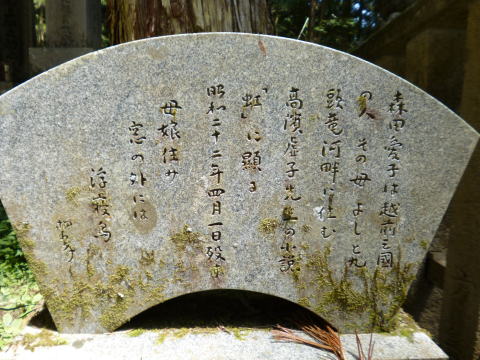 森田愛子は越前三國
の人 その母 よしと九
頭竜河畔に住む
高濱虚子先生の小説
「虹」に顕る
昭和二十二年四月一日歿す
母娘住む
窓の外には
浮寝鳥